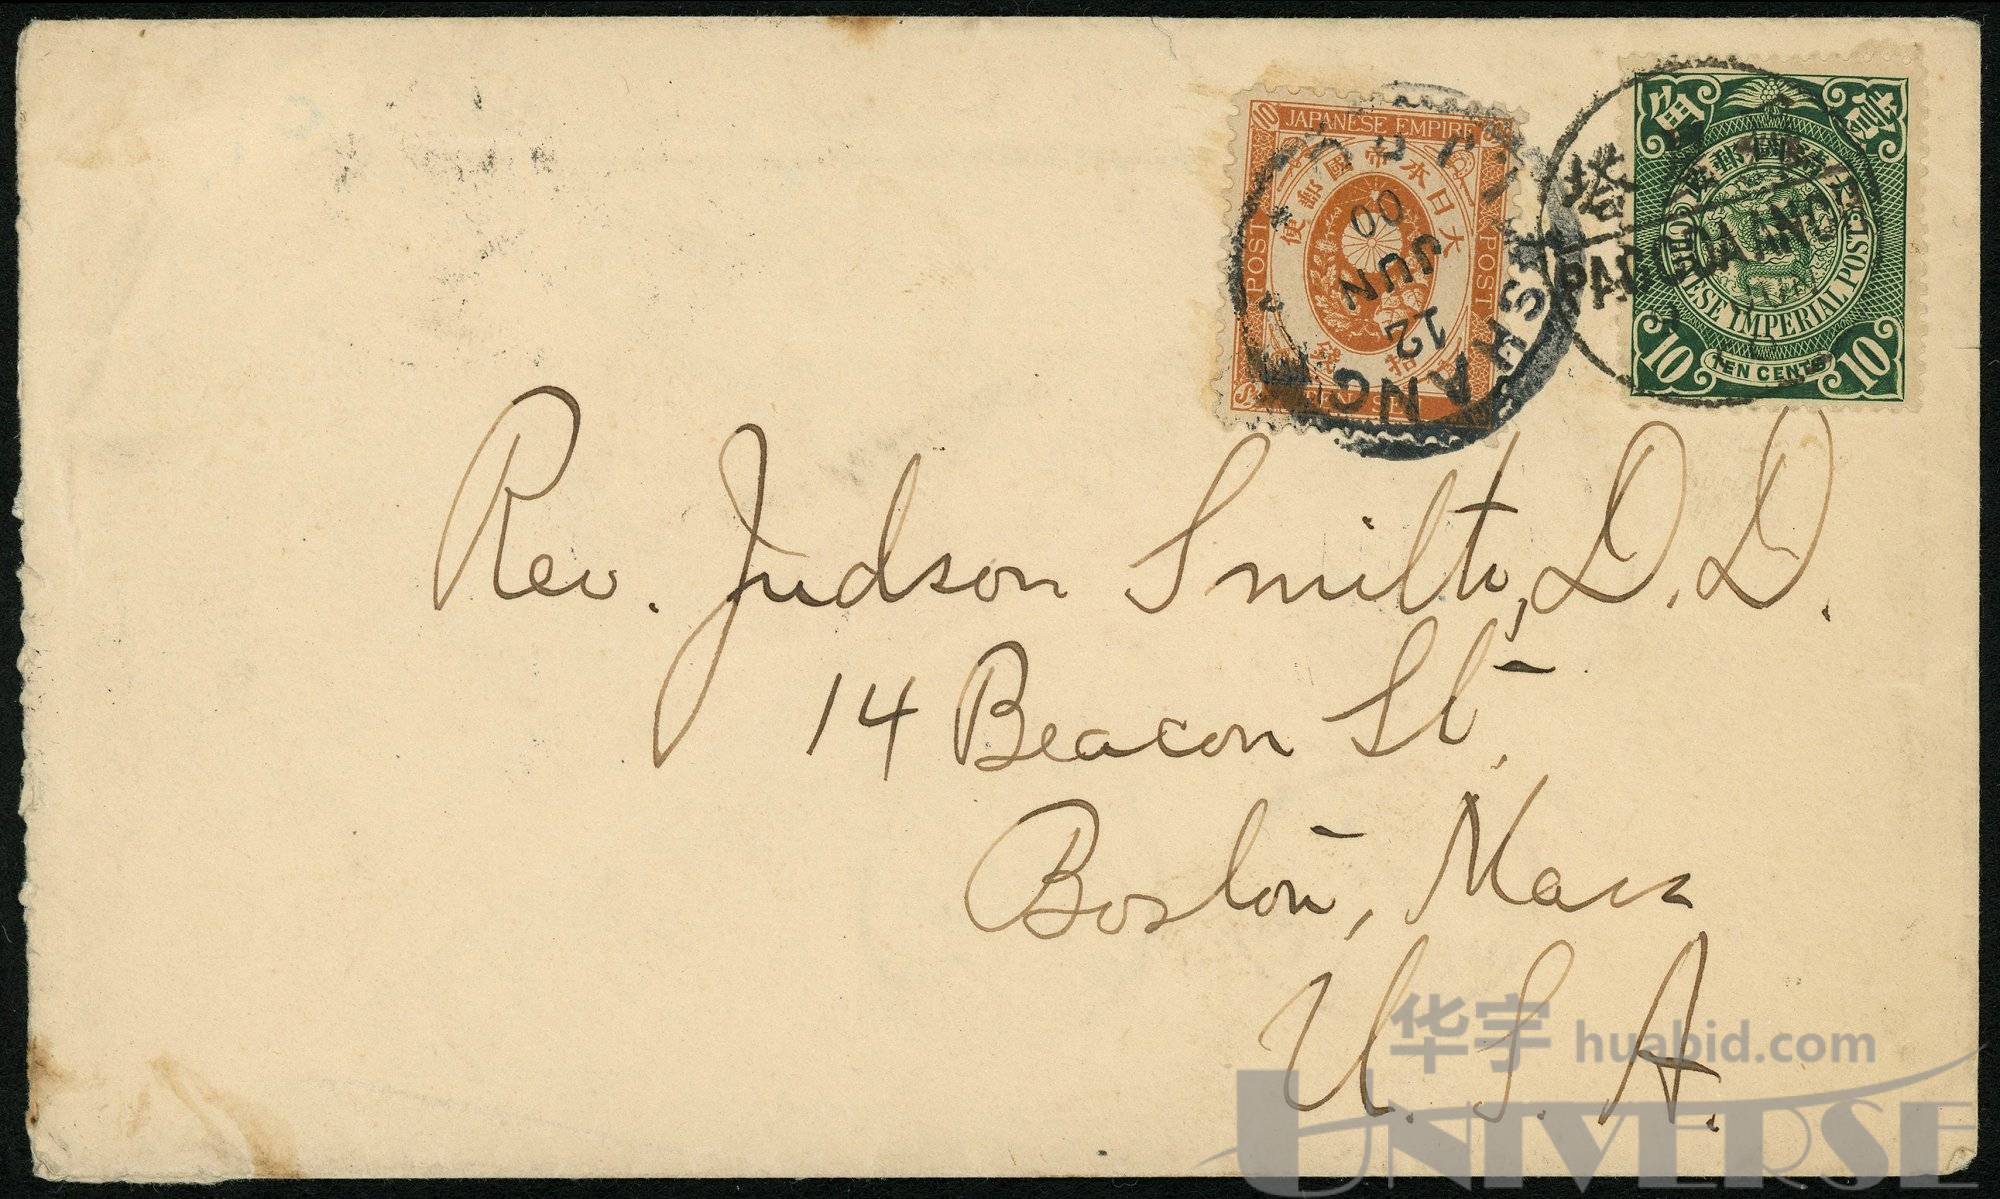 JAPANESE EMPIRE
大日本帝國郵便
POST
POST
10
拾錢
12 JUN 00
大清國郵政
CHINESE IMPERIAL POST
10 TEN CENTS 10
塔
Rev. Judson Smith, D.D.
14 Beacon St.
Boston, Mass
U.S.A.
华宇 huabid.com
UNIVERSE